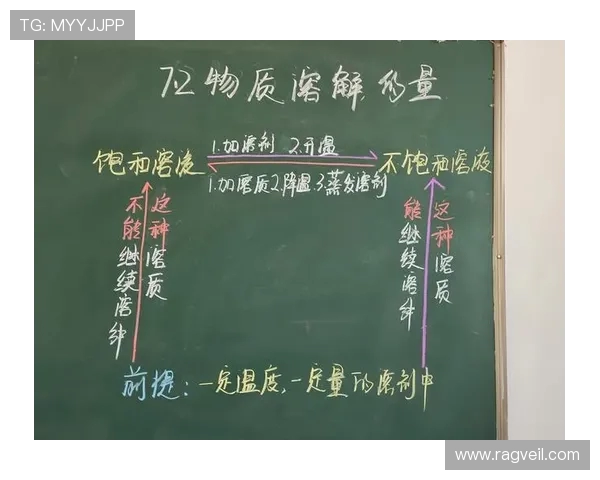 TG: MYYJJPP
7.2物质溶解的量
饱和溶液
1.加溶剂 2.升温
不饱和溶液
1.加溶质2.降温3.蒸发溶剂
这种溶质
不能继续溶解
这种溶质
能继续溶解
前提:一定温度,一定量的溶剂中
www.ragveil.com